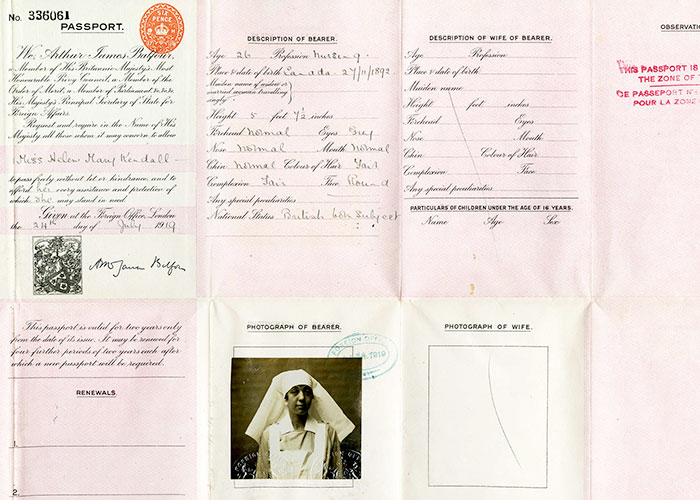 No. 336061
PASSPORT.
SIX
PENCE
We, Arthur James Balfour,
a Member of His Britannic Majesty's Most
Honourable Privy Council, a Member of the
Order of Merit, a Member of Parliament,
His Majesty's Principal Secretary of State for
Foreign Affairs,
Request and require in the Name of His
Majesty all those whom it may concern to allow
Miss Helen Mary Kendall
to pass freely without let or hindrance, and to
afford her every assistance and protection of
which she may stand in need.
Given at the Foreign Office, London
the 24th day of July 1919
Arthur James Balfour
This passport is valid for two years only
from the date of its issue. It may be renewed for
four further periods of two years each after
which a new passport will be required.
RENEWALS.
1.
2.
DESCRIPTION OF BEARER.
Age 26 Profession Nursing.
Place & date of birth Canada 27/11/1892
Maiden name if widow or
married woman travelling
singly
Height 5 feet 7½ inches
Forehead Normal Eyes Grey
Nose Normal Mouth Normal
Chin Normal Colour of Hair Fair
Complexion Fair Face Round
Any special peculiarities
National Status British born Subject
PHOTOGRAPH OF BEARER.
FOREIGN OFFICE
1919
DESCRIPTION OF WIFE OF BEARER.
Age Profession
Place & date of birth
Maiden name
Height feet inches
Forehead Eyes
Nose Mouth
Chin Colour of Hair
Complexion Face
Any special peculiarities
PARTICULARS OF CHILDREN UNDER THE AGE OF 16 YEARS.
Name Age Sex
PHOTOGRAPH OF WIFE.
OBSERVATI
THIS PASSPORT IS
THE ZONE OF
CE PASSEPORT N'E
POUR LA ZONE